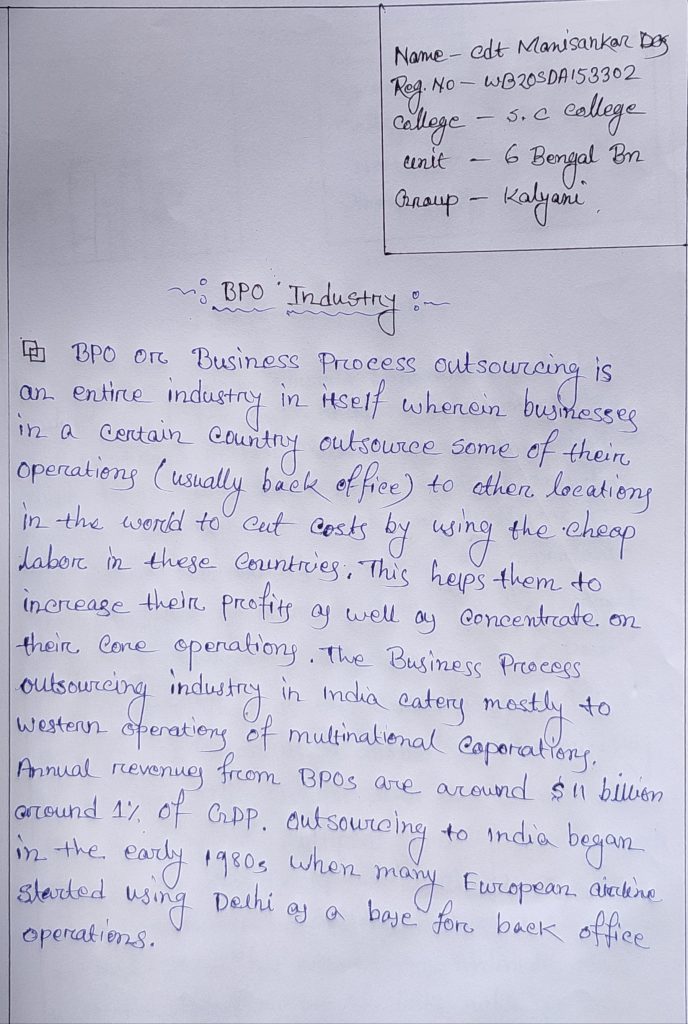 Name - Cdt Manisankar Das
Reg. No - WB20SDA153302
College - S. C College
Unit - 6 Bengal Bn
Group - Kalyani
BPO Industry
BPO or Business Process outsourcing is
an entire industry in itself wherein businesses
in a certain country outsource some of their
operations (usually back office) to other locations
in the world to cut costs by using the cheap
labor in these countries. This helps them to
increase their profits as well as concentrate on
their core operations. The Business Process
outsourcing industry in India caters mostly to
western operations of multinational coporations.
Annual revenues from BPOs are around $11 billion
around 1% of GDP. Outsourcing to India began
in the early 1980s when many European airline
started using Delhi as a base for back office
operations.